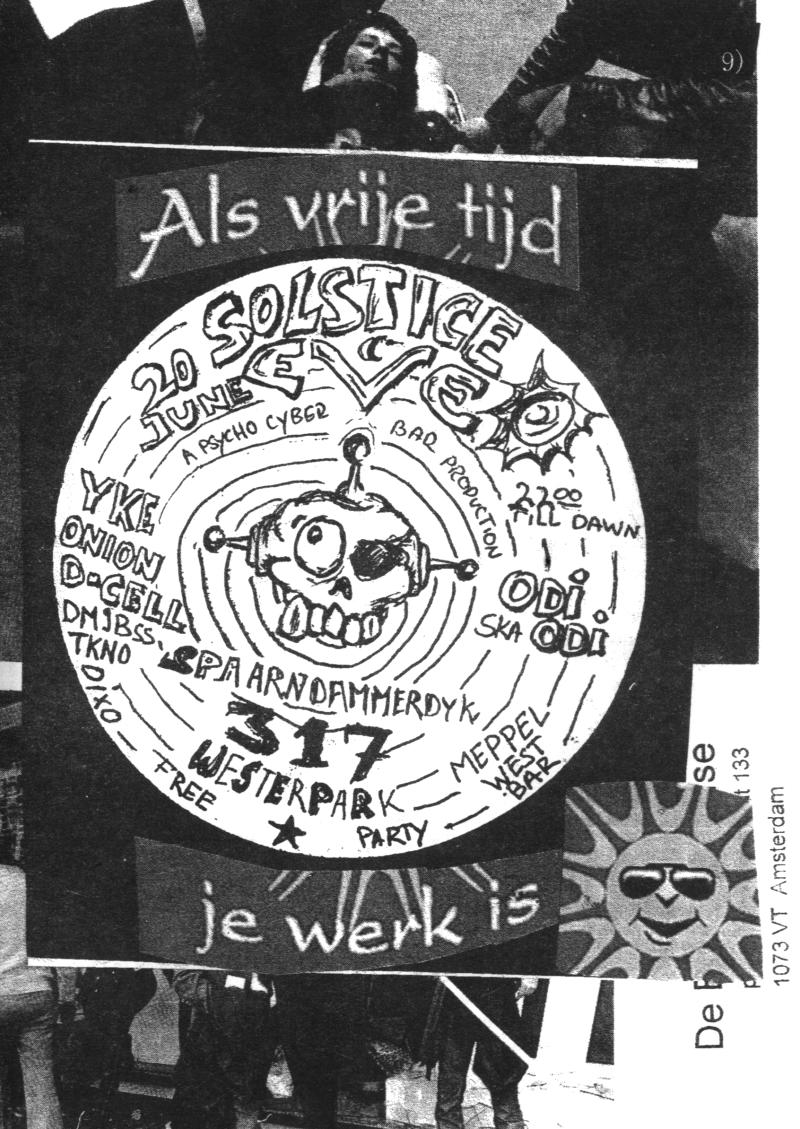 9)
Als vrije tijd
SOLSTICE
EVE
20
JUNE
A PSYCHO CYBER BAR PRODUCTION
22⁰⁰
TILL DAWN
YKE
ONION
D-CELL
DMJBSS,
TKNO
DIXO
ODi
SKA ODi.
SPAARNDAMMERDYK
317
WESTERPARK
MEPPEL
WEST
BAR
FREE ★ PARTY
je werk is
De
se
t 133
1073 VT Amsterdam